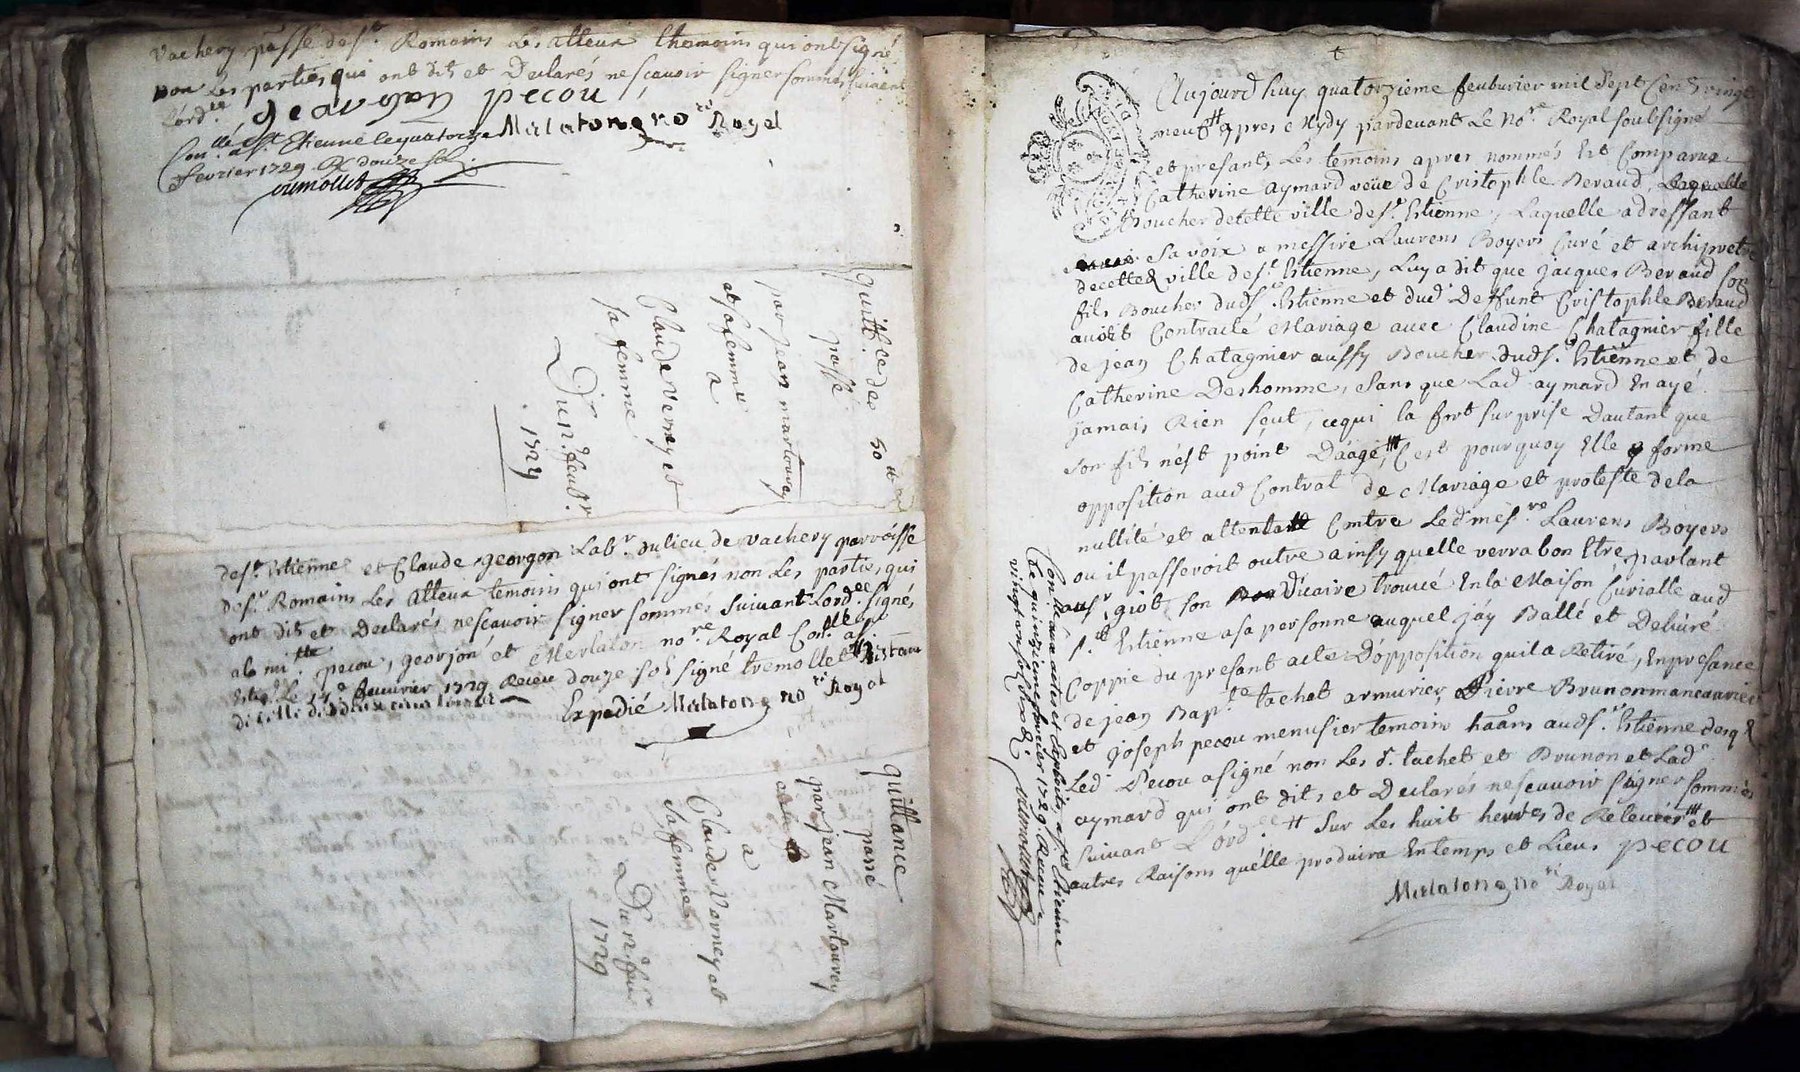 Vachery passe de st. Romains Les atteux themoins qui ont signé
non Les parties qui ont dit et Declarés nescavoir signer sommés suivent
Lord.ce
pecou
Con.llé a st. Etienne le quatorze Mulaton no.re Royal
fevrier 1729 R douze sols
tremollet
quitt.ce de 50 tt
passé
par jean marlouvey
et sa femme
a
Claude verney et
sa femme
Du 12.e feubr.
1729
de st. Etienne et Claude georgon Lab.r du lieu de vachery parroisse
de st. Romains Les atteux temoins qui ont signés non Les parties qui
ont dit et Declarés nescavoir signer sommes suivant Lord.ce signés
a la mi.tte pecou, georjon et Merlaton no.re Royal Con.llé a st
Estie. Le 14.e fevurier 1729 Receu douze sols signé tremollet
Expedié Mulaton no.re Royal
quittance
passé
par jean Marlouvey
a
Claude Verney et
sa femme
Du 12.e feu.r
1729
Aujourd'huy quatorzieme feuburier mil sept Cent vingt
neuf apres Mydy pardevant Le No.re Royal soubsigné
et presants Les temoins apres nommés Est Comparue
Catherine aymard veüe de Cristophle Beraud,
Boucher decette ville de st. Estienne, Laquelle adressant
sa voix a messire Laurens Boyers Curé et archipretre
decette ville de st. Estienne, Luy a dit que jacques Beraud son
fils Boucher dud st. Estienne et dud Deffunt Cristophle Beraud
avoit Contracté Mariage avec Claudine Chatagnier fille
de jean Chatagnier aussy Boucher dud s.t Estienne et de
Catherine Deshomme, sans que Lad aymard En aye
jamais Rien sçut, ce qui la surprise Dautant que
son fils n'est point D'aage, C'est pourquoy Elle forme
opposition aud Contrat de Mariage et proteste de la
nullité et attentat Contre Led mes.re Laurens Boyers
ou il passeroit outre ainsy quelle verra bon Etre, parlant
au s.r giot son Vicaire trouvé En la Maison Curialle aud
s.t Estienne a sa personne auquel j'ay Ballé et Delivré
Coppie du presant acte D'opposition quil a Retiré, En presance
de jean Bap.te tachat armurier, Pierre Brunon
et joseph pecou menusier temoins aud s.t Estienne desq.
Led Pecou a signé non Les s.r tachet et Brunon et Lad
aymard qui ont dits et Declarés nescavoir signer sommés
suivant L'ord.ce # sur Les huit heures de Relevée et
autres Raisons qu'elle produira En temps et Lieu. pecou
Mulaton no.re Royal
Con.llé aux actes et Exploits a st. Etienne
Le quinzieme fevrier 1729. Receu
tremollet